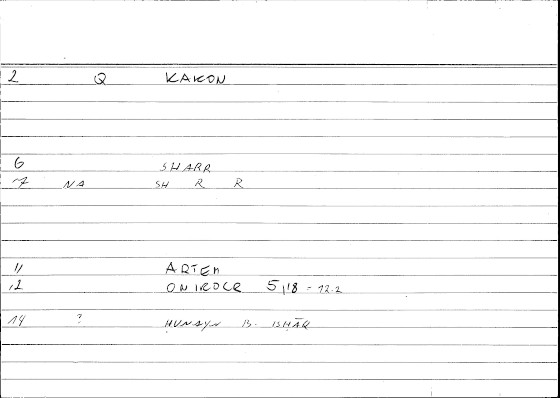 2 Q KAKON
6 SHARR
7 NA SH R R
11 ARTEM
12 ONIROCR 5,18 - 12.2
14 ? ḤUNAYN B. ISḤĀQ